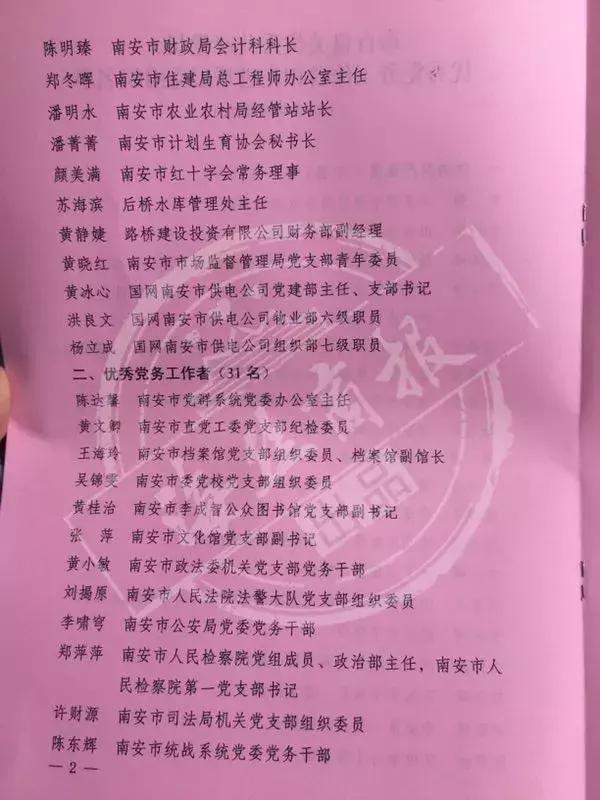 陈明臻 南安市财政局会计科科长
郑冬晖 南安市住建局总工程师办公室主任
潘明水 南安市农业农村局经管站站长
潘菁菁 南安市计划生育协会秘书长
颜美满 南安市红十字会常务理事
苏海滨 后桥水库管理处主任
黄静婕 路桥建设投资有限公司财务部副经理
黄晓红 南安市市场监督管理局党支部青年委员
黄冰心 国网南安市供电公司党建部主任、支部书记
洪良文 国网南安市供电公司物业部六级职员
杨立成 国网南安市供电公司组织部七级职员
二、优秀党务工作者（31名）
陈达馨 南安市党群系统党委办公室主任
黄文卿 南安市直党工委党支部纪检委员
王海玲 南安市档案馆党支部组织委员、档案馆副馆长
吴锦雯 南安市委党校党支部组织委员
黄桂治 南安市李成智公众图书馆党支部副书记
张 萍 南安市文化馆党支部副书记
黄小敏 南安市政法委机关党支部党务干部
刘揭原 南安市人民法院法警大队党支部组织委员
李啸穹 南安市公安局党委党务干部
郑萍萍 南安市人民检察院党组成员、政治部主任，南安市人
民检察院第一党支部书记
许财源 南安市司法局机关党支部组织委员
陈东辉 南安市统战系统党委党务干部
— 2 —